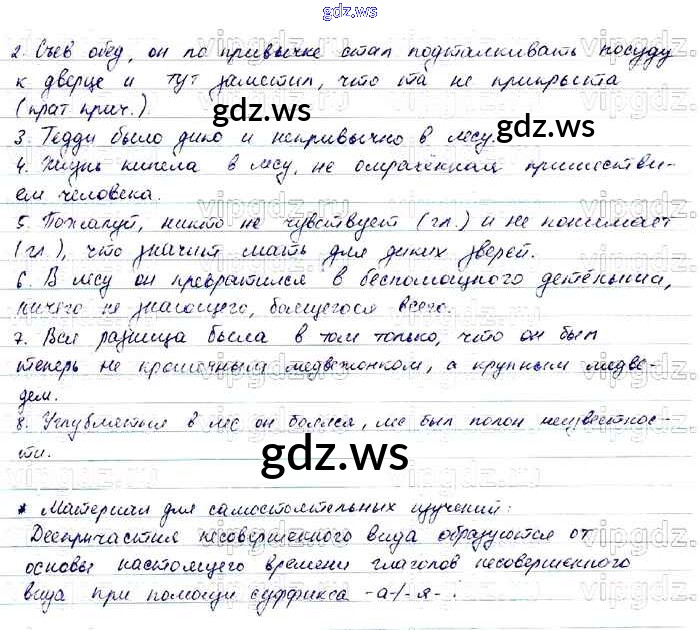 gdz.ws
2. Съев обед, он по привычке стал подталкивать посуду
к дверце и тут заметил, что та не прикрыта
(крат. прич.).
3. Тедди было дико и непривычно в лесу.
4. Жизнь кипела в лесу, не омрачённая пришестви-
ем человека.
5. Пожалуй, никто не чувствует (гл.) и не понимает
(гл.), что значит мать для диких зверей.
6. В лесу он превратился в беспомощного детёныша,
ничего не знающего, боящегося всего.
7. Вся разница была в том только, что он был
теперь не крошечным медвежонком, а крупным медве-
дем.
8. Углубляться в лес он боялся, лес был полон неизвестнос-
ти.
gdz.ws
* Материал для самостоятельных изучений:
Деепричастия несовершенного вида образуются от
основы настоящего времени глаголов несовершенного
вида при помощи суффикса -а-/-я- .
gdz.ws